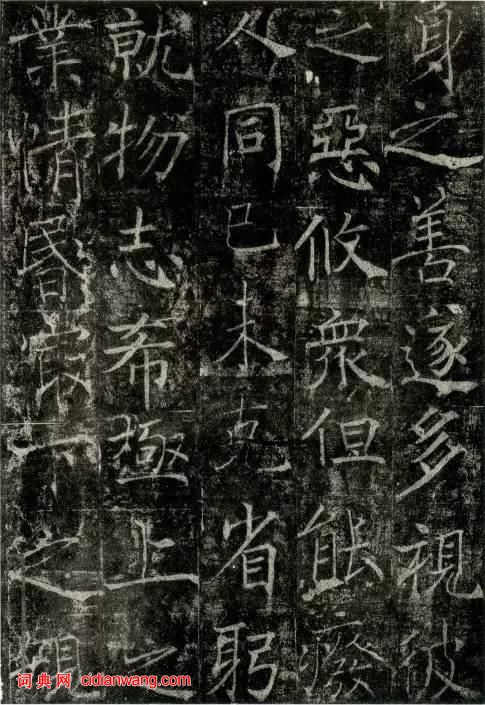 身之善遂多視彼
之惡攸衆但能癈
人同己未克省躬
就物志希極上之
業情昬最下之
词典网 www.cidianwang.com